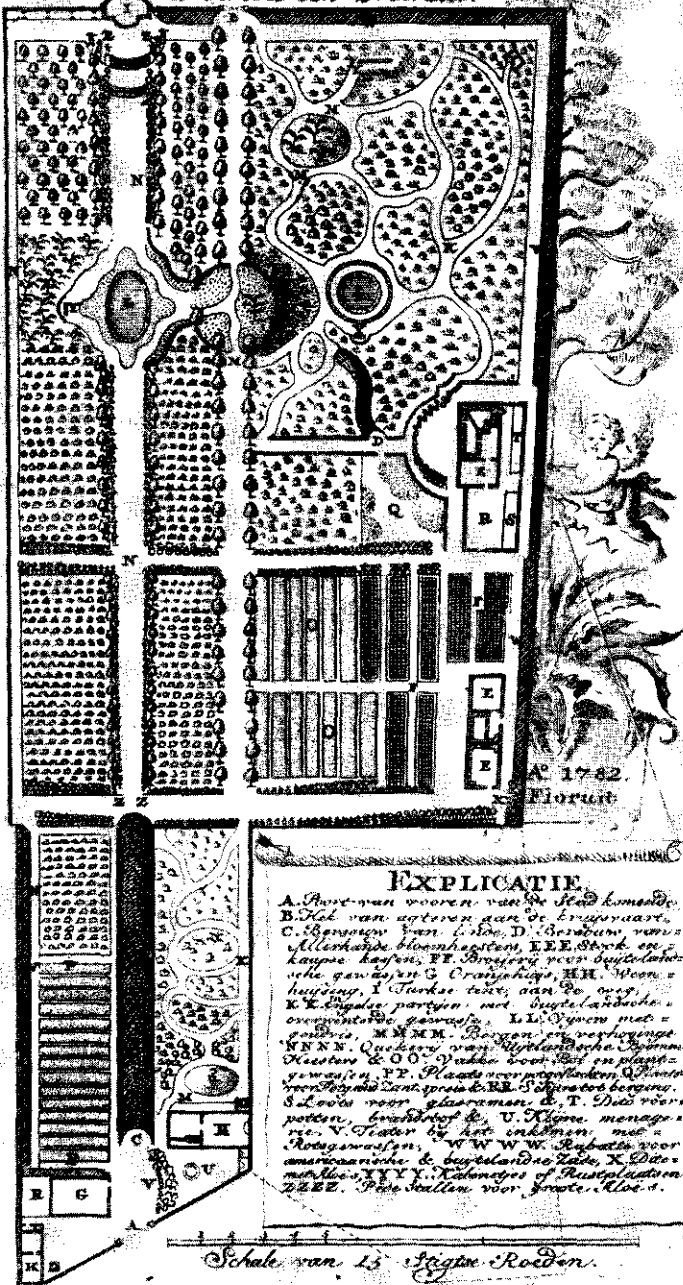 A.º 1782.
Floruit
EXPLICATIE.
A. Poort van vooren van de Stad komende.
B. Hek van agteren aan de kruysvaart.
C. Bersouw van Linde, D. Bersouw, van
Allerhande bloemheesters, EEE Stook en
kaupse kassen, FF. Broijerij voor buytelands
sche gewassen G Oranjehuijs, HH. Woon
huijsing, I Turkse tent, aan de weg,
K.K. Engelse partijen, met buytelandsche
overwinterde gewassen, LL. Vyvers met
MMMM. Bergen, en verhogings
NNNN. Quekerij van Buytelandsche Boomen
Heesters & OO. Vakke voor Bol en plant
gewassen, PP. Plaats voor Q
RR Schure tot berging
S. Loots voor glasramen & T. Dito voor
potten, brandstof & U. Kleyne menage
rie, V. Teater by het inkomen met
Rotsgewassen, WWWW. Rabatte voor
americaansche & buytelandse Zade, X. Dito
met Aloe's, YYYY. Kabinetjes of Rustplaatsen
ZZZZ. Stallen voor groote Aloe's.
Schale van 25 Stigtse Roeden.